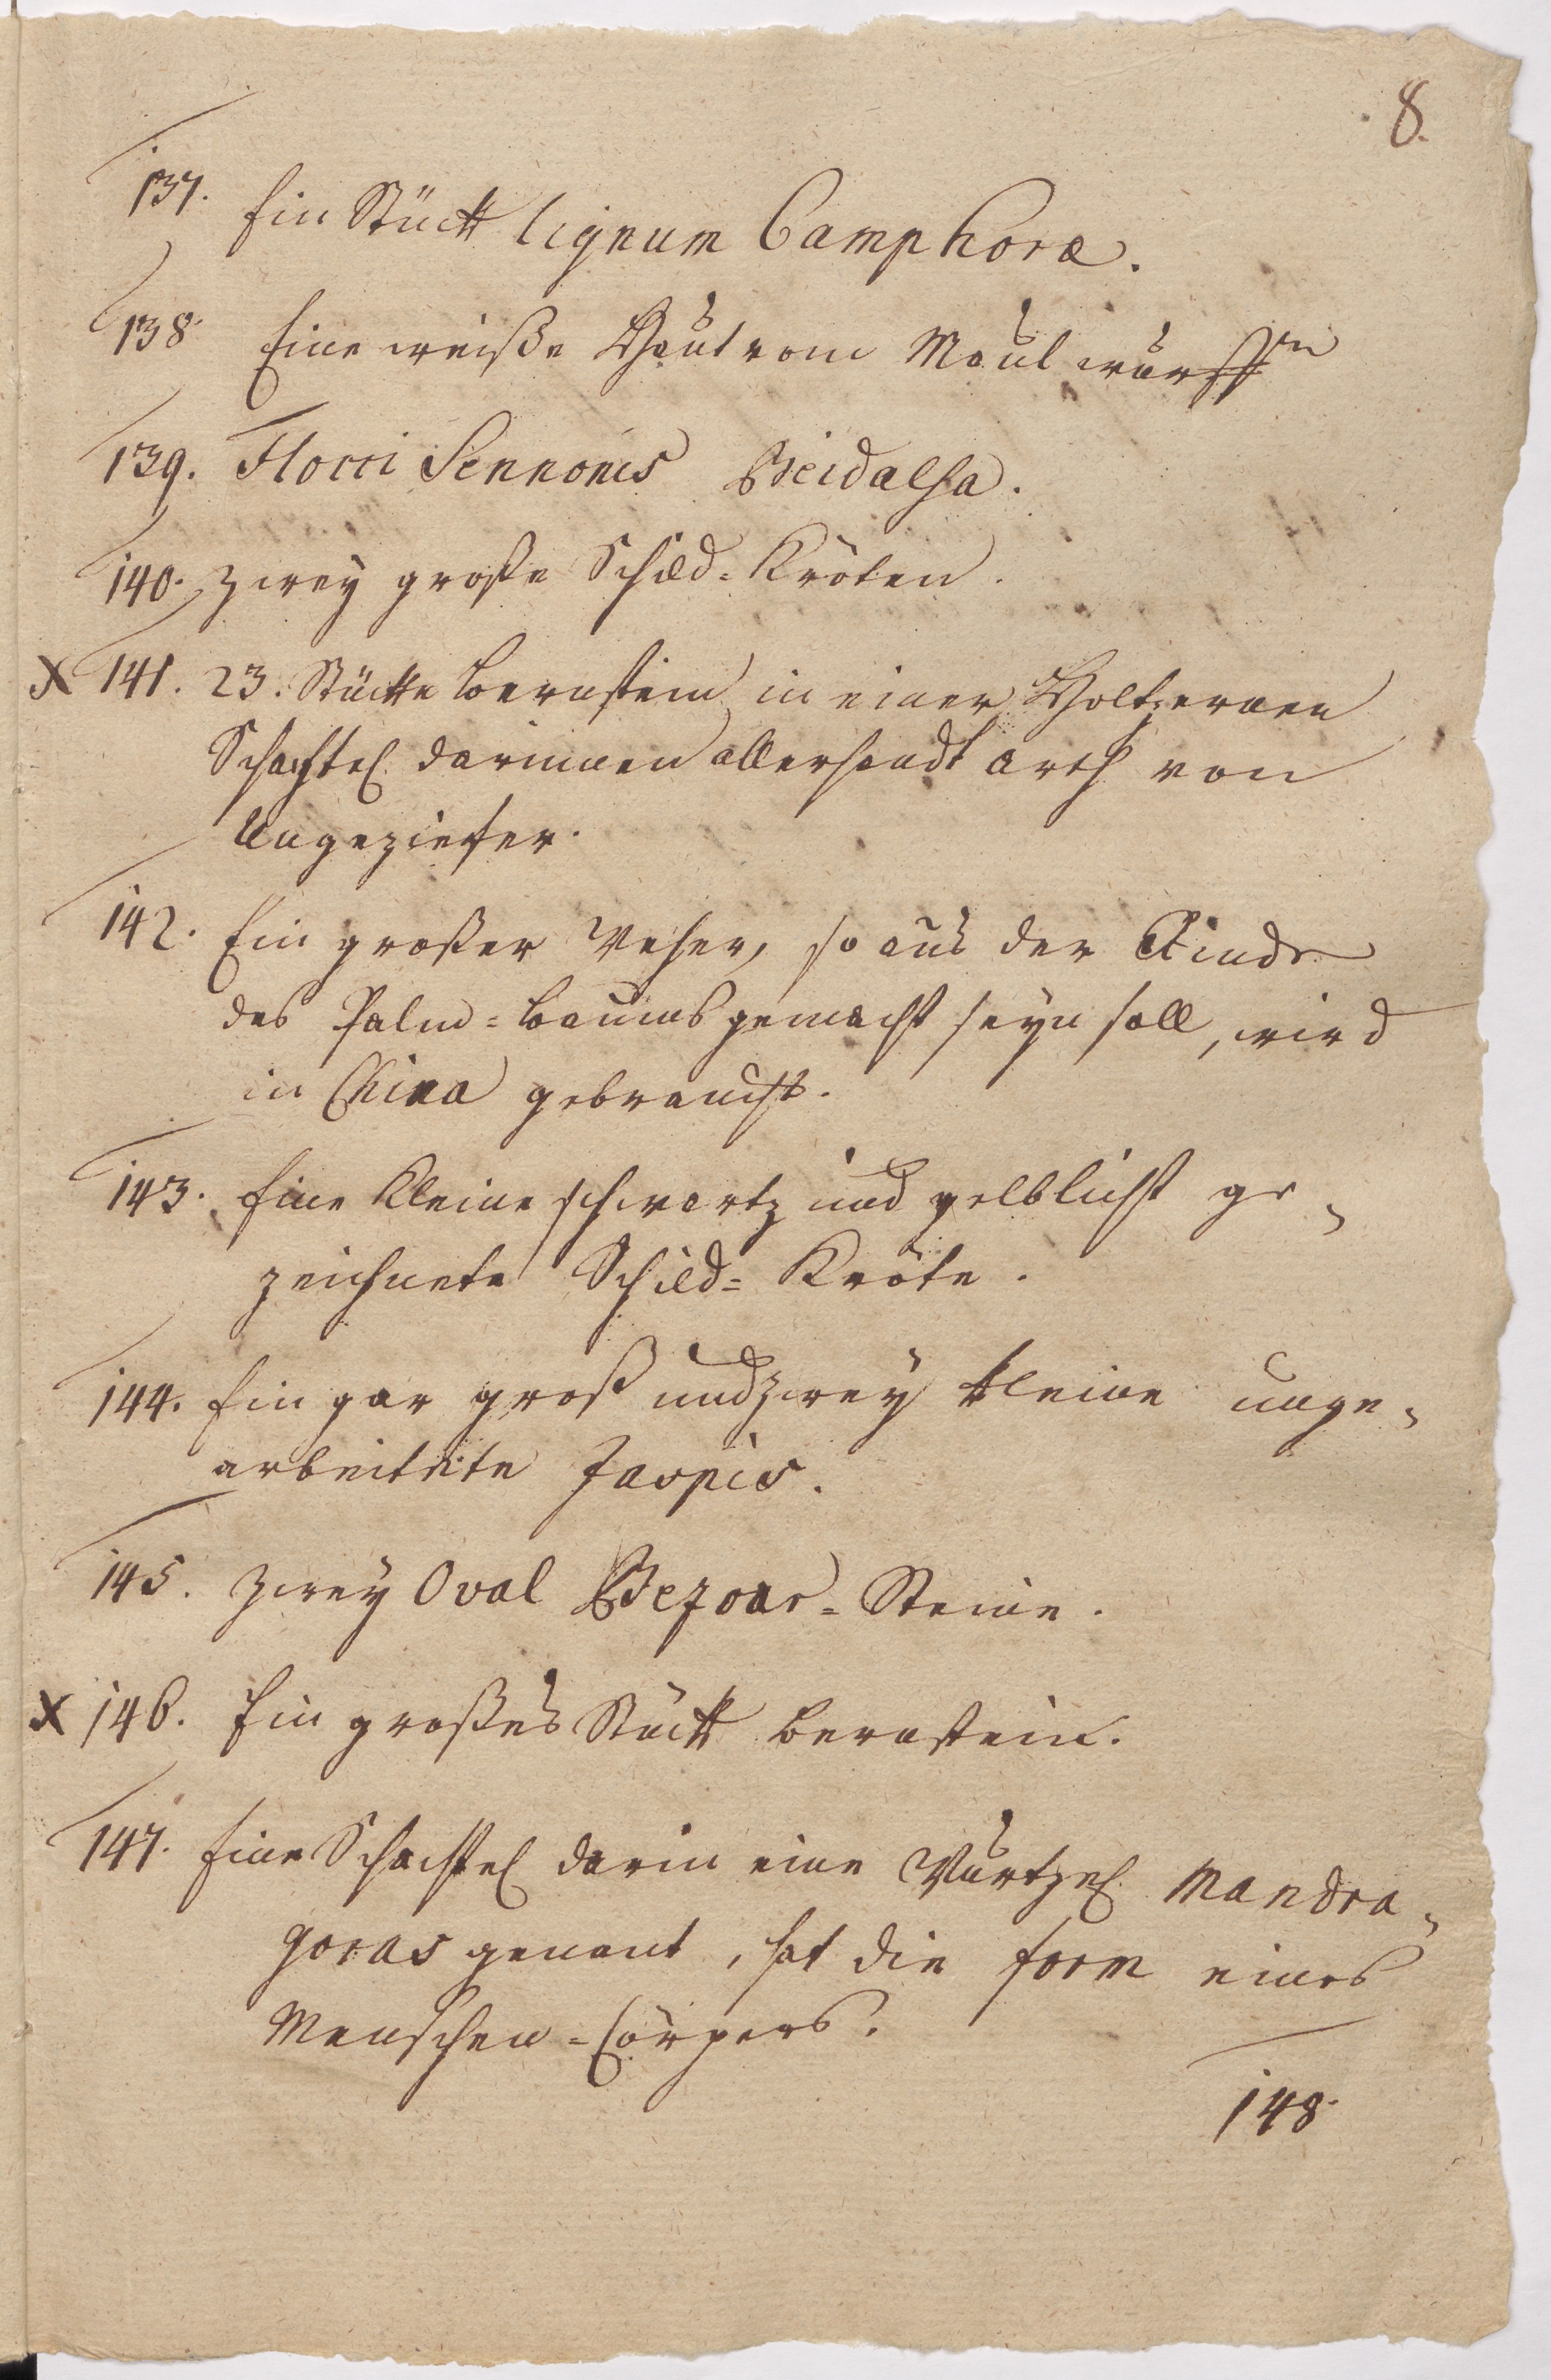 8.
137. Ein Stück lignum Camphoræ.
138. Eine weiße Haut vom Maulwurff
139. Flocci Sennonis Beidalsa.
140. Zwey große Schild=Kröten.
X 141. 23. Stücke bernstein in einer Holtzernen
Schachtel darinnen allerhandt arth von
Ungeziefer.
142. Ein großer Weher, so aus der Rinde
des Palm=baums gemacht seyn soll, wird
in China gebraucht.
143. Eine kleine schwartz und gelblicht ge=
zeichnete Schild=Kröte.
144. Ein gar groß und zwey kleine unge=
arbeitete Jaspis.
145. Zwey Oval Bezoar=Steine.
X 146. Ein großes Stück bernstein.
147. Eine Schachtel darin eine Wurtzel Mandra=
goras genant, hat die form eines
Menschen=Cörpers.
148.